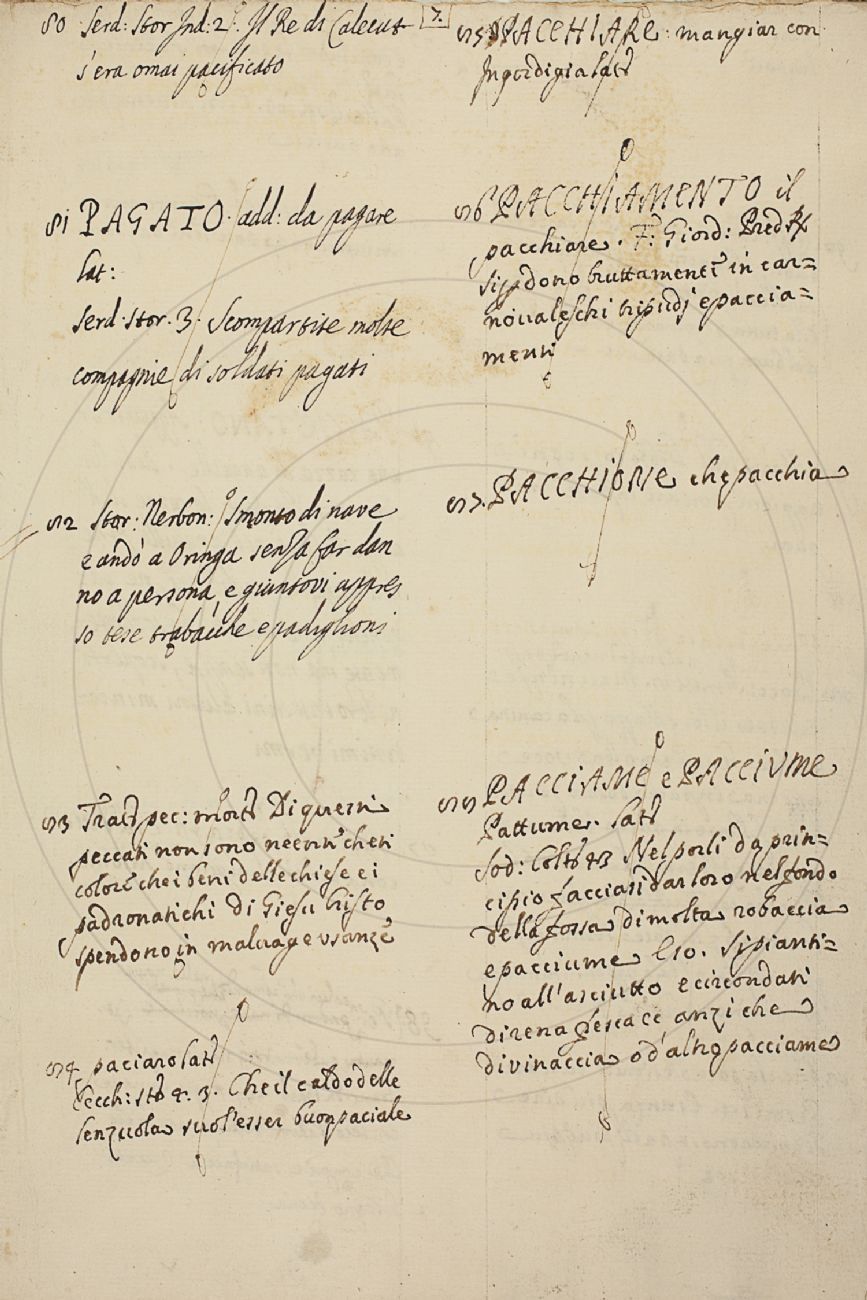 80 Serd: Stor Ind: 2. Il Re di Calecut
s'era omai pacificato
81 PAGATO. add: da pagare
lat:
Serd. stor. 3. Scompartite molte
compagnie di soldati pagati
82 Stor: Nerbon: Smontò di nave
e andò a Oringa senza far dan
no a persona, e giuntovi appres
so tese trabacche e padiglioni
83 Tratt pec: mort Di questi
peccati non sono necenti che ti
colore che i beni delle chiese e i
padronatichi di Giesu Cristo
spendono in malvage usanze
84 paciaro lat
Cecch: 3. Che il caldo delle
lenzuola suol' esser buon paciale
7.
85 PACCHIARE: mangiar con
Ingordigia lat
86 PACCHIAMENTO il
pacchiare. F: Giord: Pred R
si godono bruttamente in car=
novaleschi tripudj e paccia=
menti
87. PACCHIONE che pacchia
PACCIAME e PACCIUME
Pattume. lat
Sod: Colt 43 Nel porli da prin=
cipio facciasi dar loro nel fondo
della fossa di molta robaccia
e pacciume Si pianti=
no all'asciutto e circondati
di rena fresca anzi che
di vinaccia o d'altro pacciame